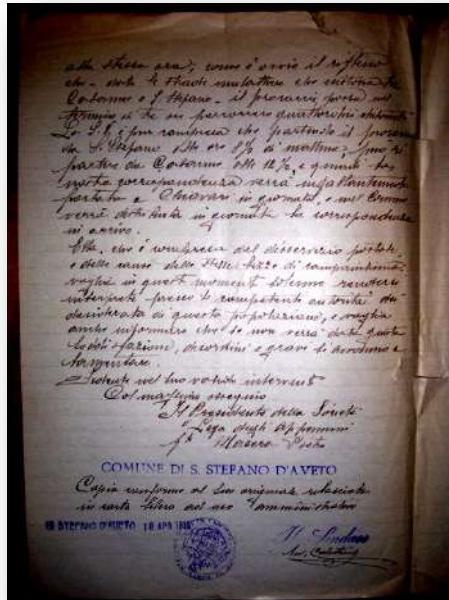 alla stessa ora; come è ovvio il riflesso
che - date le strade mulattiere che
Cabanne e S. Stefano - il procaccia possa nel
termine di tre ore percorrere quattordici chilometri
La S. V. è pur compresa che partendo il procaccia
da S. Stefano alle ore 8½ di mattino,
partire da Cabanne alle 12½, e quindi la
nostra corrispondenza verrà
portata a Chiavari in giornata, e nel Comune
verrà distribuita in giornata la corrispondenza
in arrivo.
Ella, che è compresa del disservizio postale,
e delle cause dello stesso
voglia in questi momenti rendersi
interprete presso le competenti autorità dei
desiderata di questa popolazione, e voglia
anche informare che se non verrà data questa
soddisfazione, disordini e gravi si avranno a
lamentare.
nel suo valido
Col massimo ossequio
Il Presidente della Società
Lega degli Appennini
Masera
COMUNE DI S. STEFANO D'AVETO
Copia conforme al suo originale rilasciata
in carta libera ad uso amministrativo
S. STEFANO D'AVETO 18 APR
Il Sindaco